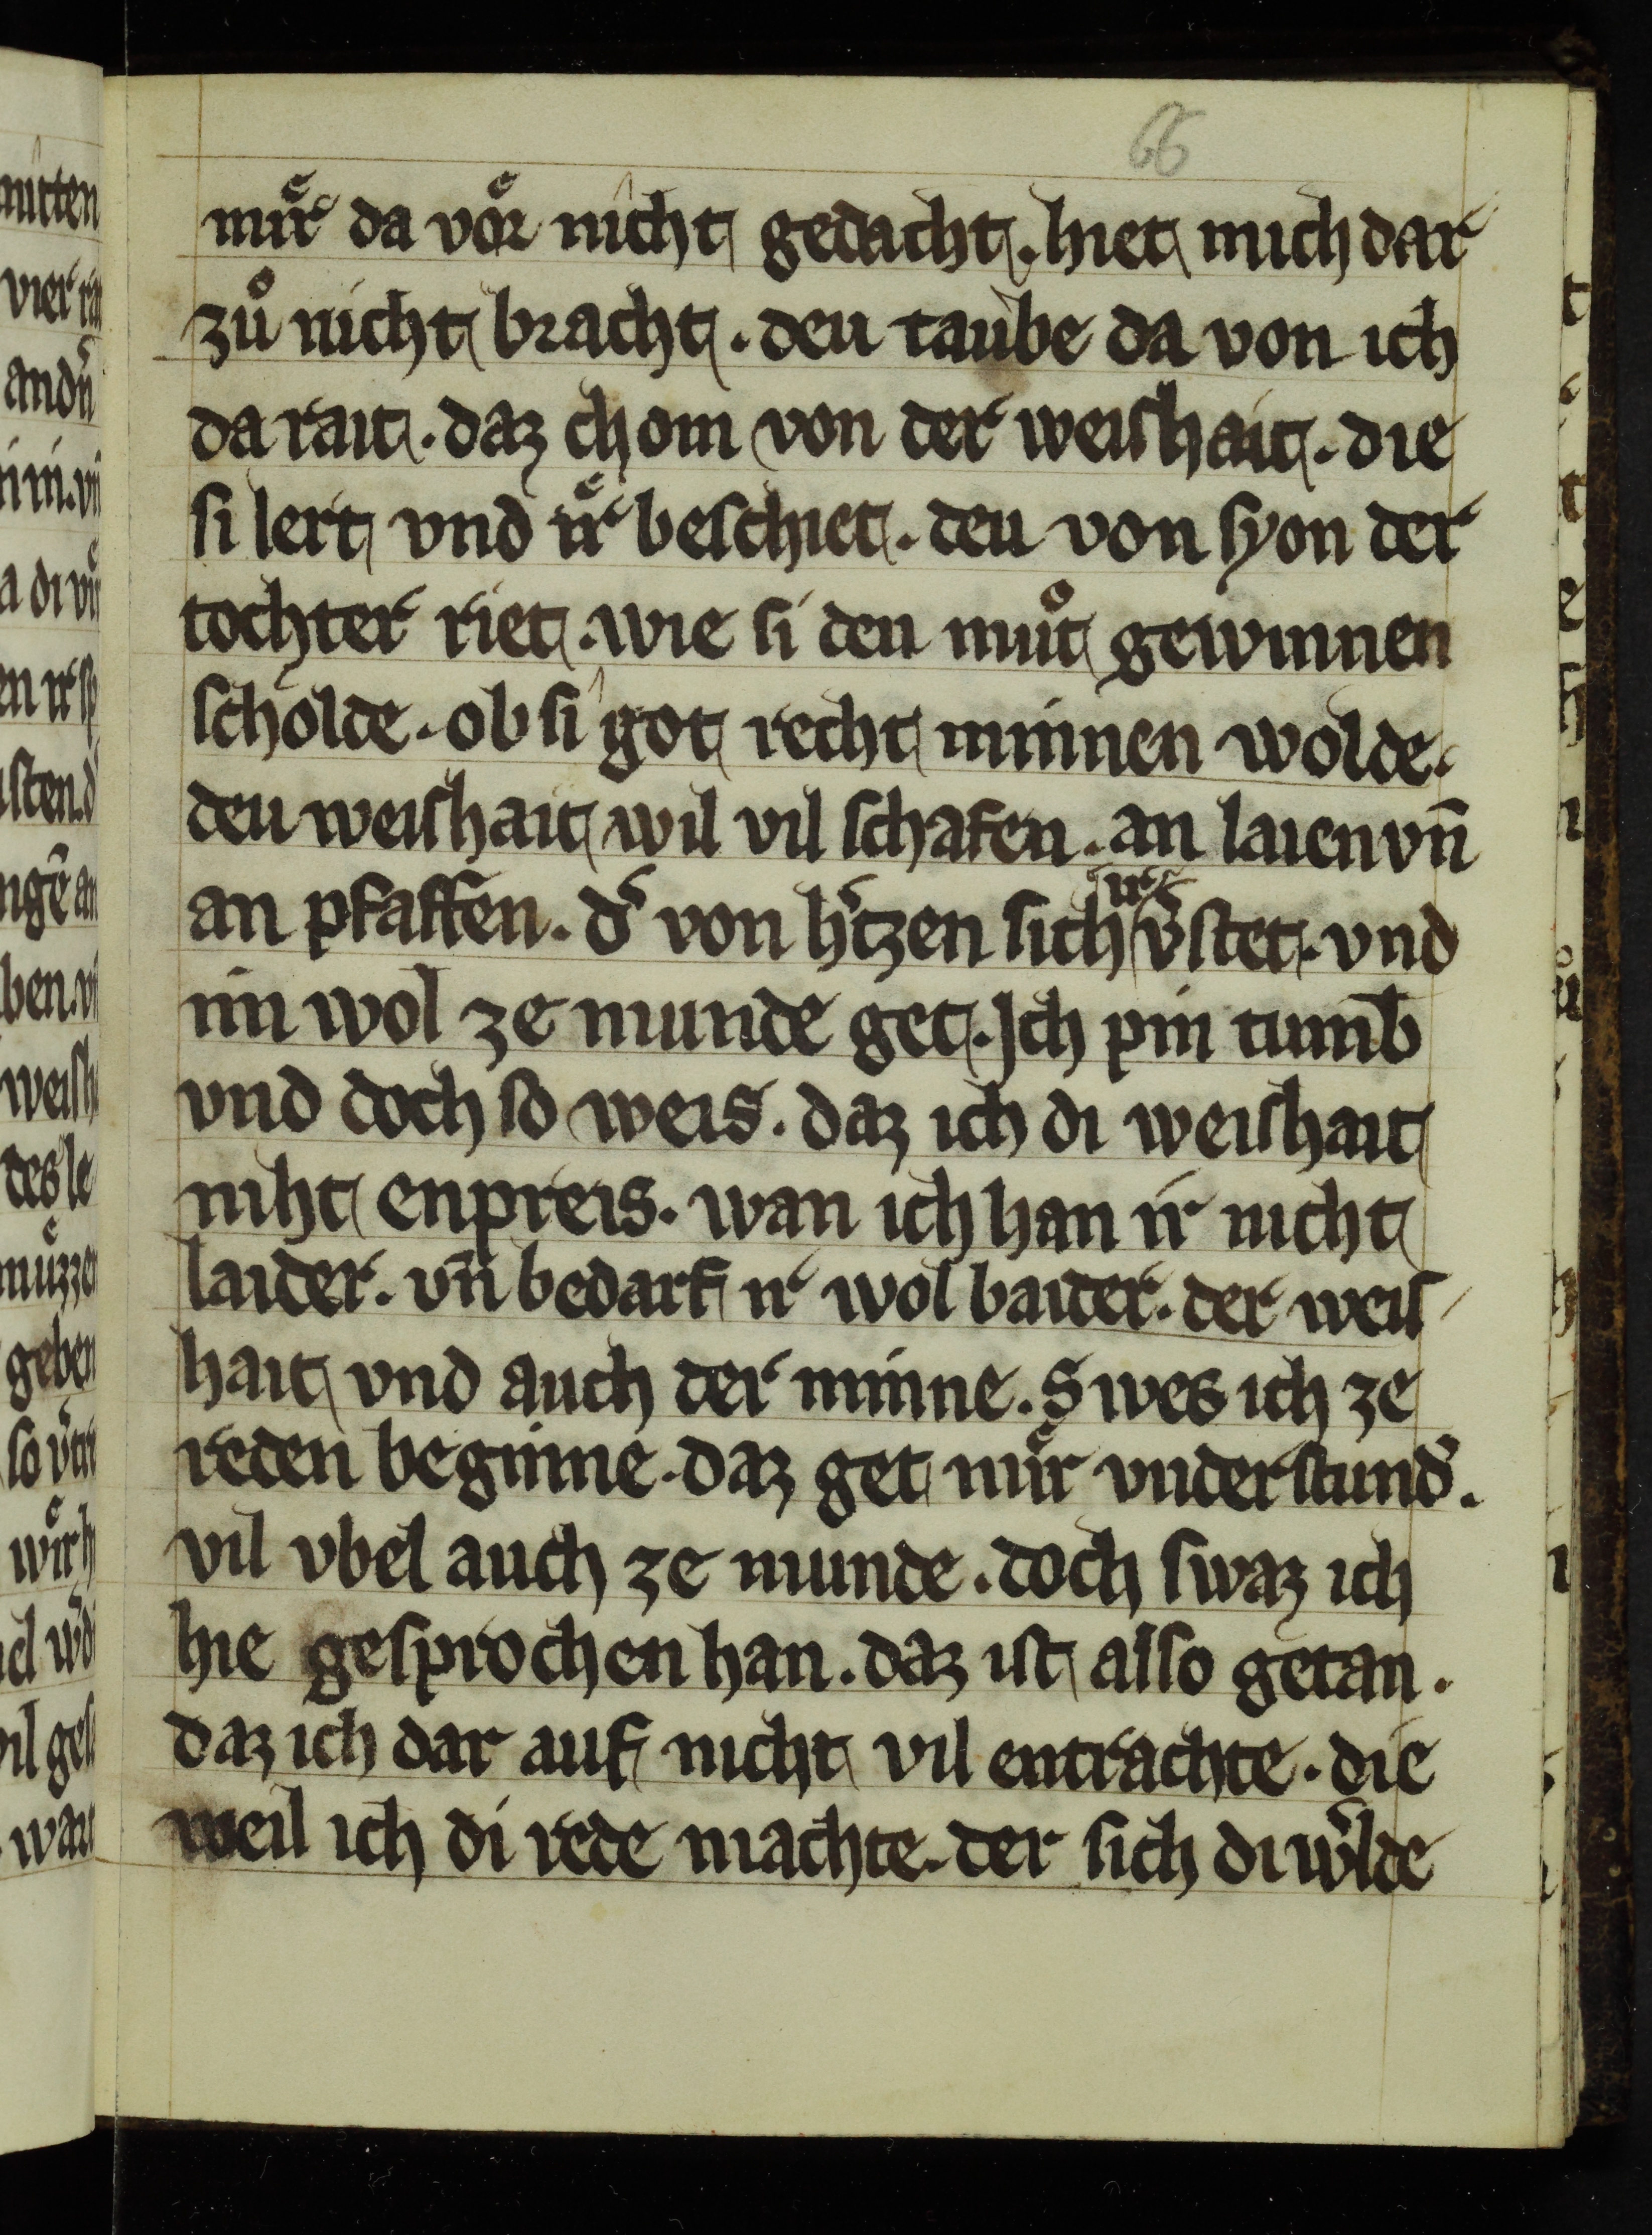 66
muͤr da voͤr nicht gedacht. hiet mich dar
zuͦ nicht bracht. deu taube da von ich
da rait. daz chom von der weishait. die
si lert vnd iͤr beschiet. deu von syon der
tochter riet. wie si den muͦt gewinnen
scholde. ob si got recht minnen wolde.
deu weishait wil vil schafen. an laien vn̄
an pfaffen. d͛ von h͛tzen sich ir v͛stet. vnd
im wol ze munde get. Jch pin tumb
vnd doch so weis. daz ich di weishait
niht enpreis. wan ich han ir nicht
laider. vn̄ bedarf ir wol baider. der weis
hait vnd auch der minne. Swes ich ze
reden beginne. daz get miͤr vnderstund͛.
vil vbel auch ze munde. doch swaz ich
hie gesprochen han. daz ist also getan.
daz ich dar auf nicht vil entrachte. die
weil ich di rede machte. der sich di w͛lde